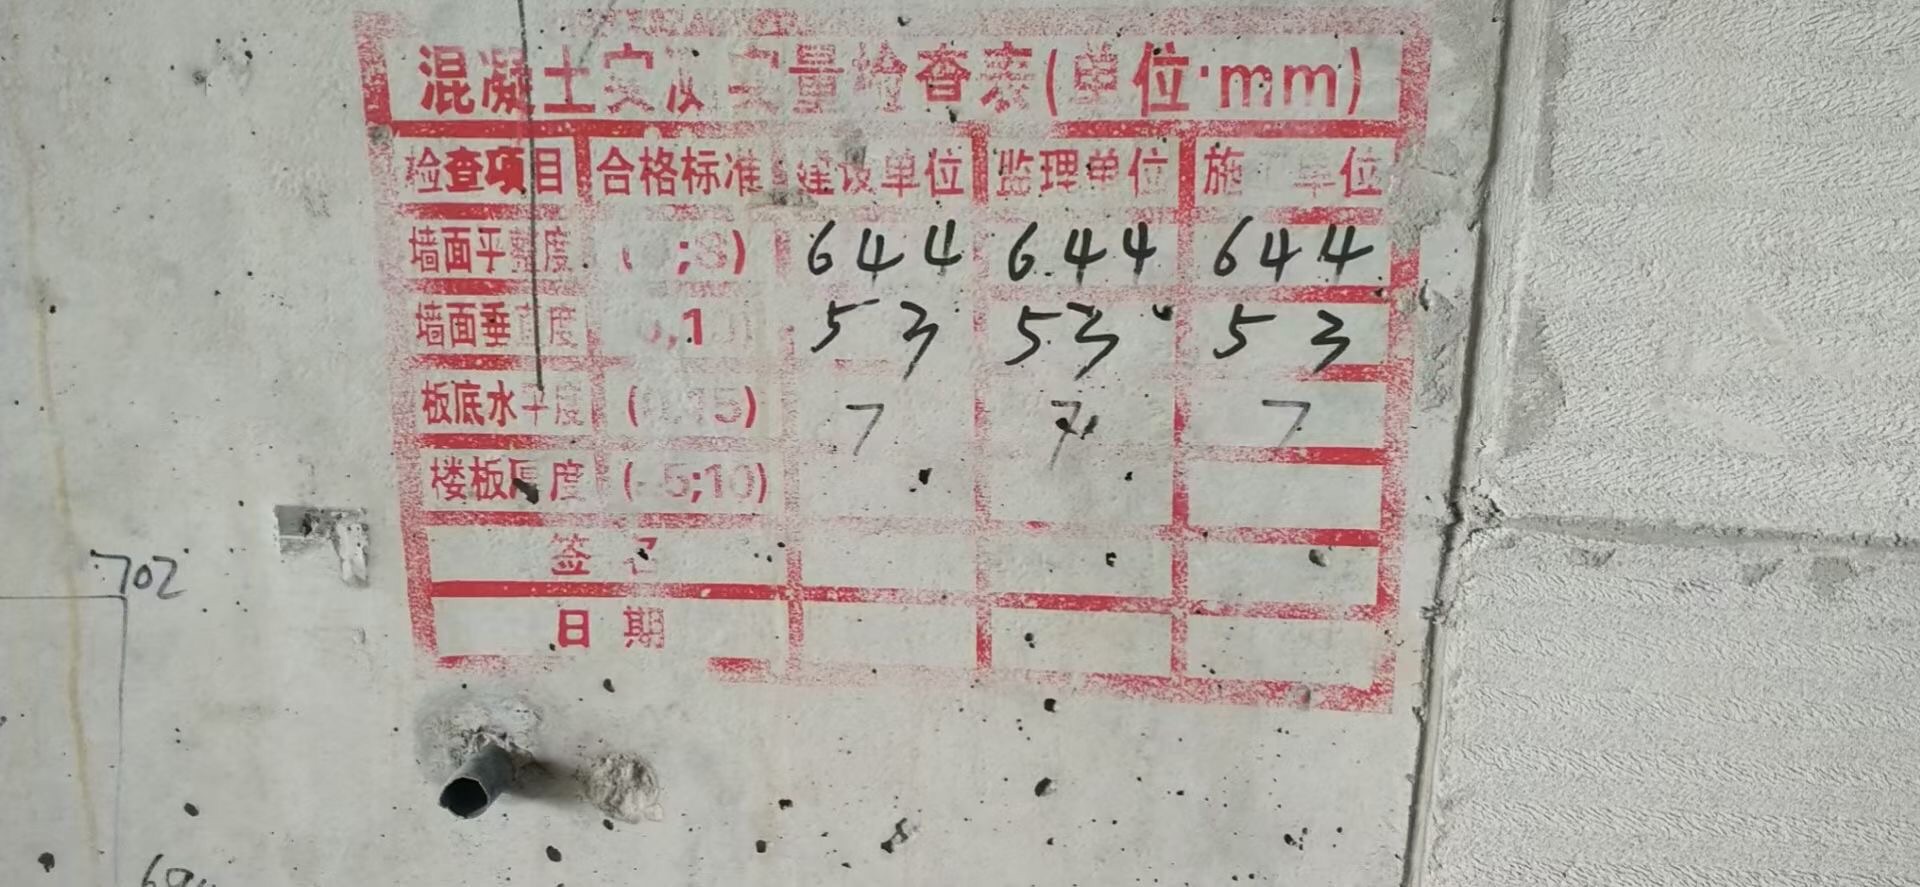 混凝土实测实量检查表(单位:mm)
检查项目 合格标准 建设单位 监理单位 施工单位
墙面平整度 ( ;8) 6 4 4 6 4 4 6 4 4
墙面垂直度 0,10 5 3 5 3 5 3
板底水平度 (0,15) 7 7 7
楼板厚度 (-5;10)
签 名
日 期
702